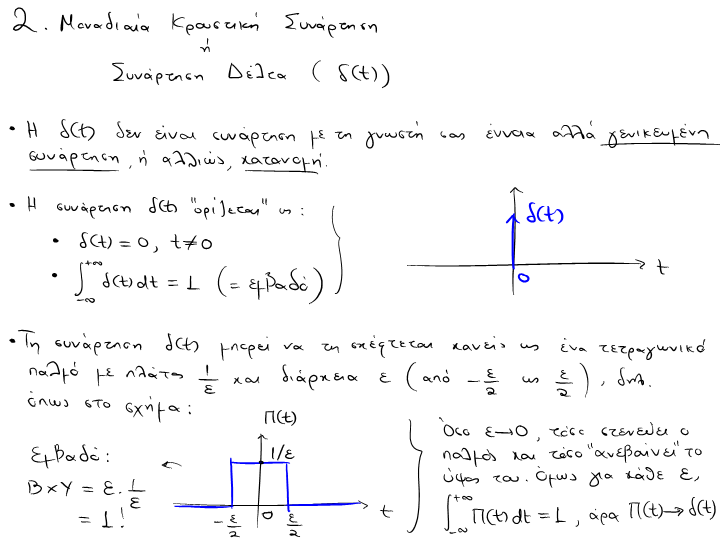 2. Μοναδιαία Κρουστική Συνάρτηση
ή
Συνάρτηση Δέλτα ( δ(t) )
• Η δ(t) δεν είναι συνάρτηση με τη γνωστή σας έννοια αλλά γενικευμένη
συνάρτηση, ή αλλιώς, κατανομή.
• Η συνάρτηση δ(t) "ορίζεται" ως:
• δ(t) = 0, t ≠ 0
• ∫_{-∞}^{+∞} δ(t) dt = 1 (= εμβαδό)
δ(t)
t
0
• Τη συνάρτηση δ(t) μπορεί να τη σκέφτεται κανείς ως ένα τετραγωνικό
παλμό με πλάτος 1/ε και διάρκεια ε (από -ε/2 ως ε/2), δηλ.
όπως στο σχήμα:
Π(t)
1/ε
-ε/2 0 ε/2 t
Εμβαδό:
Β×Υ = ε · 1/ε
= 1!
Όσο ε→0, τόσο στενεύει ο
παλμός και τόσο "ανεβαίνει" το
ύψος του. Όμως για κάθε ε,
∫_{-∞}^{+∞} Π(t) dt = 1, άρα Π(t) → δ(t)